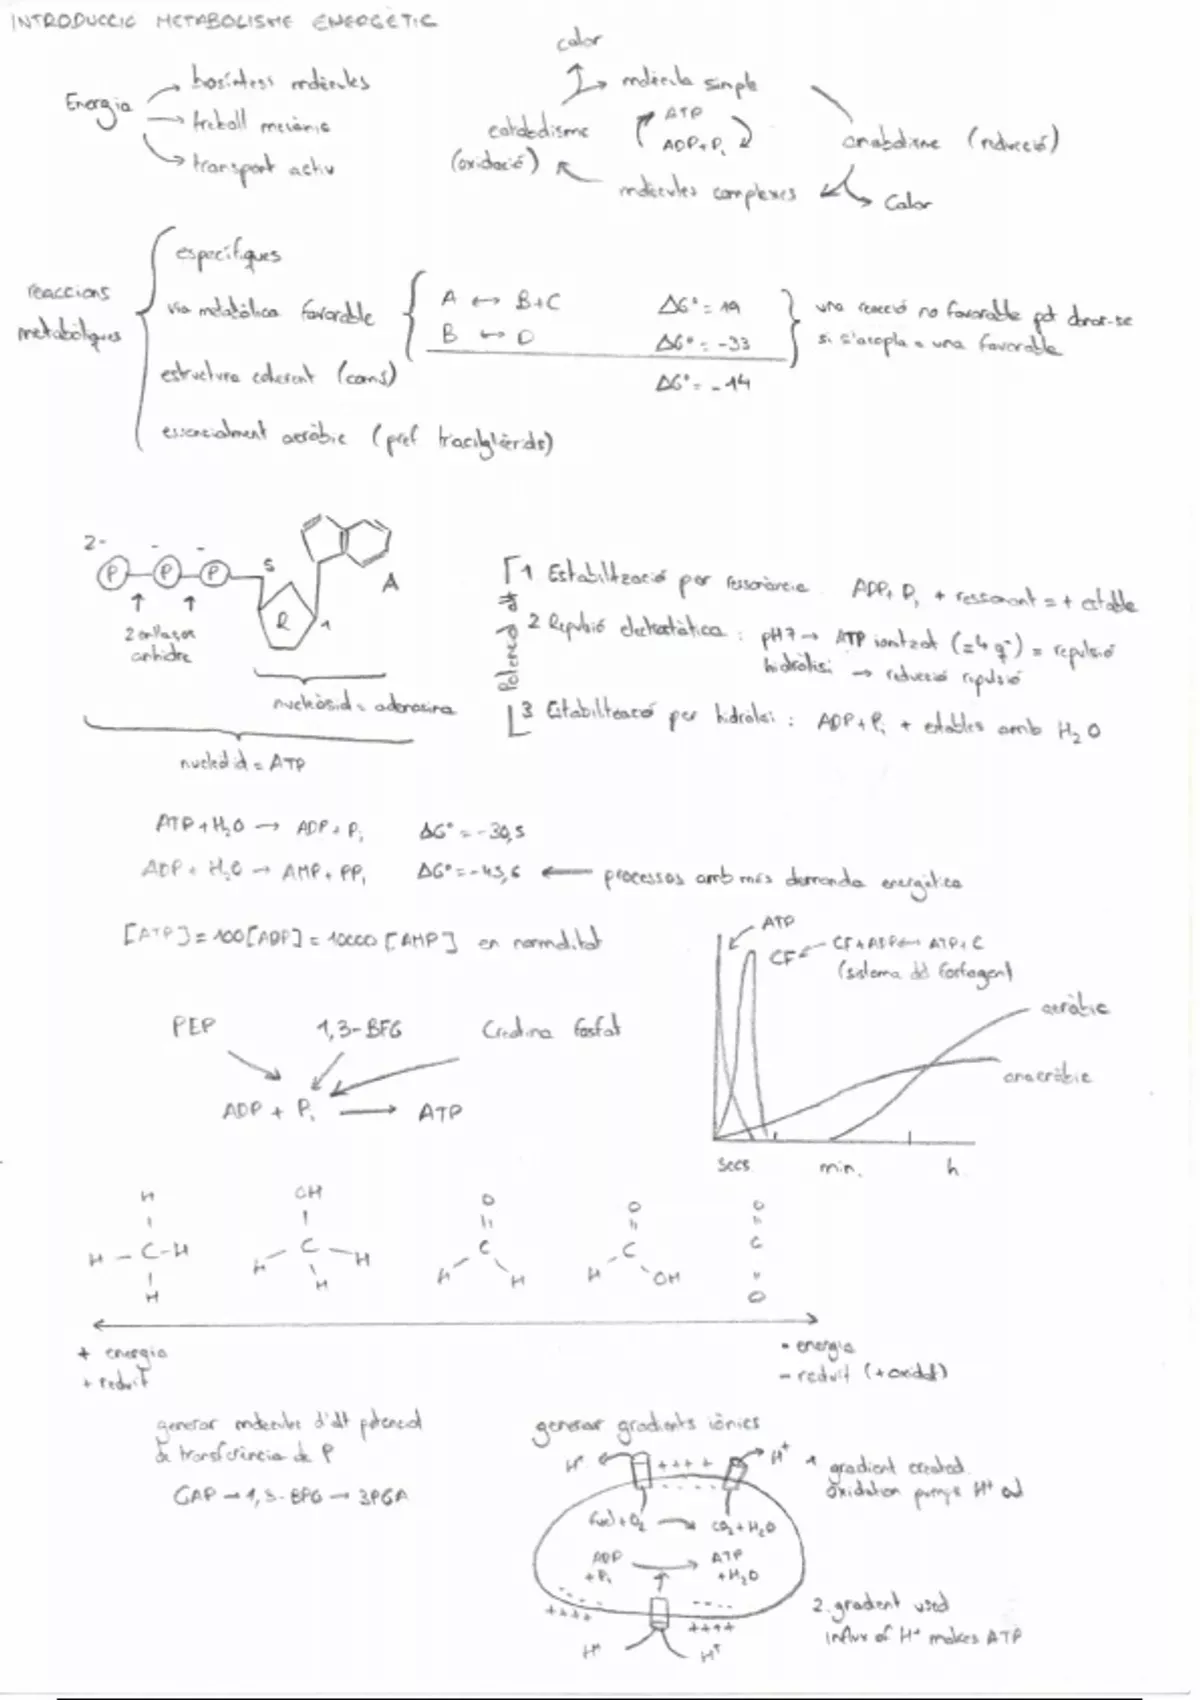 INTRODUCCIÓ METABOLISME ENERGÈTIC
Energia
biosíntesi molècules
treball mecànic
transport actiu
calor
molècula simple
catabolisme
(oxidació)
ATP
ADP+Pi
anabolisme (reducció)
molècules complexes
Calor
reaccions
metabòliques
específiques
via metabòlica favorable
estructura coherent (camí)
essencialment aeròbic (pref triacilglicèrids)
A ↔ B+C ΔG°= 19
B ↔ D ΔG°= -33
ΔG°= -14
una reacció no favorable pot donar-se
si s'acopla a una favorable
2- - -
P P P 5
R 1
A
2 enllaços
anhídre
nucleòsid = adenosina
nucleòtid = ATP
1 Estabilització per ressonància ADP, Pi + ressonant = + estable
2 Repulsió electrostàtica : pH 7 → ATP ionitzat (=4 q-) = repulsió
hidròlisi → reducció repulsió
3 Estabilització per hidròlisi : ADP+Pi + estables amb H2O
ATP + H2O → ADP + Pi ΔG° = -30,5
ADP + H2O → AMP + PPi ΔG° = -45,6 ← processos amb més demanda energètica
[ATP] = 100[ADP] = 10000 [AMP] en normalitat
PEP 1,3-BFG Creatina fosfat
ADP + Pi → ATP
ATP
CF
CF+ADP ↔ ATP+C
(sistema del fosfagen)
aeròbic
anaeròbic
secs min. h
H OH O O O
H - C - H C C C C
H H H H H H OH O
H
+ energia
+ reduït
- energia
- reduït (+oxidat)
generar molècules d'alt potencial
de transferència de P
GAP → 1,3-BPG → 3PGA
generar gradients iònics
H+ ++++ H+
- - - -
fuel + O2 → CO2 + H2O
ADP ATP
+Pi +H2O
- - - - - - - -
++++ ++++
H+ H+
1 gradient created.
oxidation pumps H+ out
2. gradient used
influx of H+ makes ATP